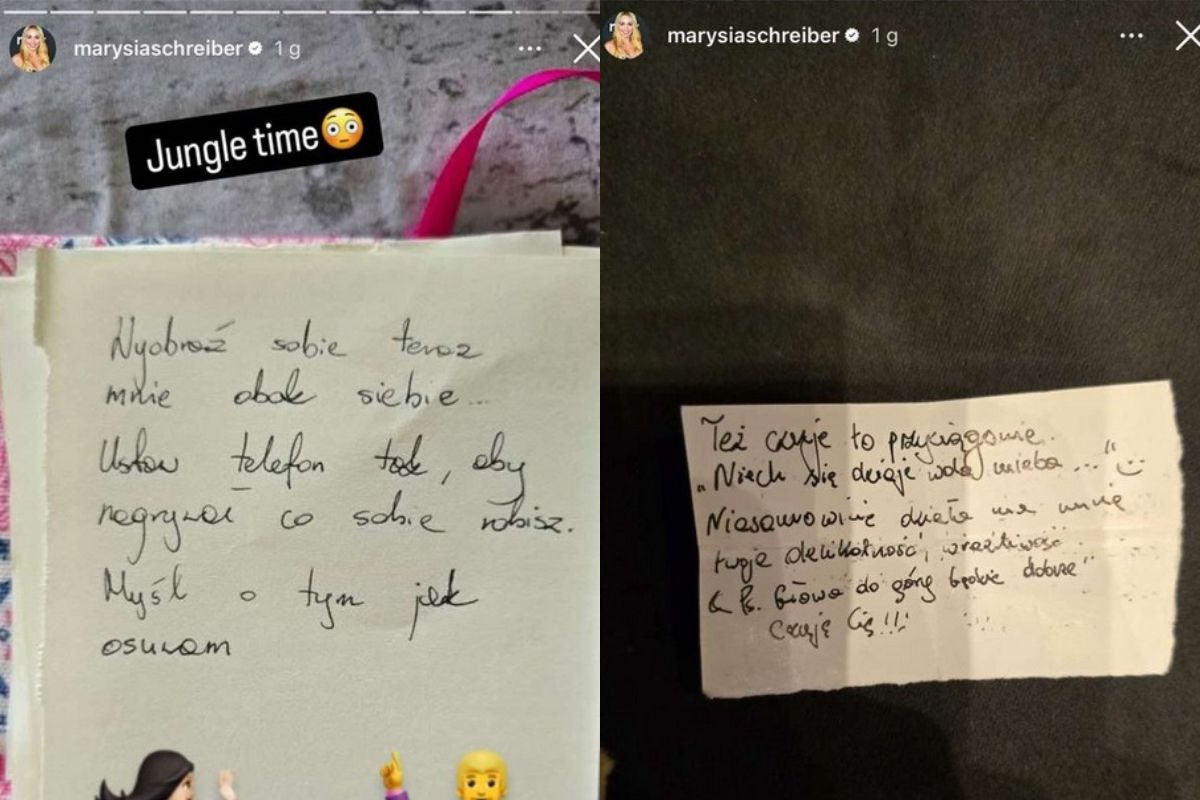 marysiaschreiber 1 g
Jungle time
Wyobraź sobie teraz
mnie obok siebie...
Ustaw telefon tak, aby
nagrywał co sobie robisz.
Myśl o tym jak
osuwam
marysiaschreiber 1 g
Też czuję to przyciąganie.
„Niech się dzieje wola nieba ..."
Niesamowicie działa na mnie
twoja delikatność, wrażliwość
Ps. Głowa do góry będzie dobrze"
Czuję Cię!!!